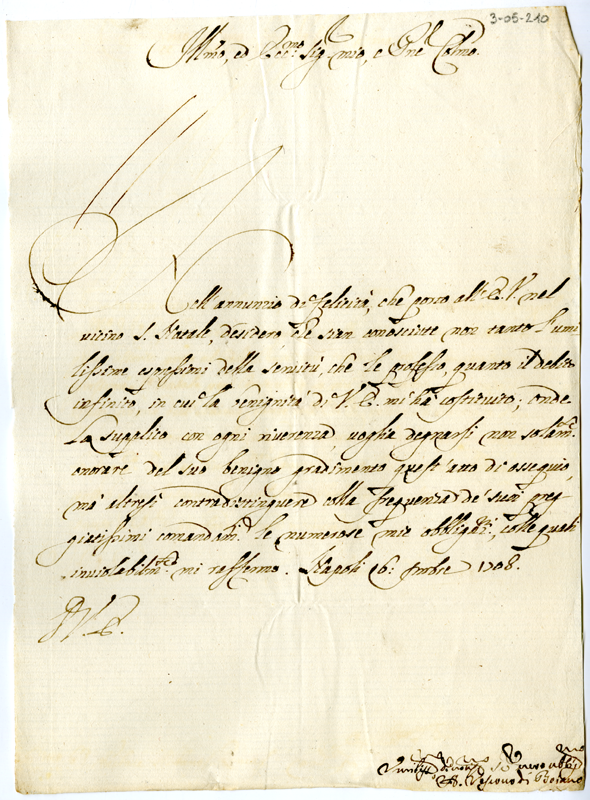 3-05-210
Ill.mo, ed Ecc.mo Sig.r mio, e P.ne Col.mo
Nell'annunzio di felicità, che porto all'E. V. nel
vicino S. Natale, desidero, che sian conosciute non tanto l'umi
lissime espressioni della servitù, che le professo, quanto il debito
infinito, in cui la benignità di V. E. mi hà costituito; onde
La supplico con ogni riverenza, voglia degnarsi non solam.te
onorare del suo benigno gradimento quest'atto di ossequio,
mà altresì contradistinguere colla frequenza de' suoi preg-
giatissimi comandam.ti le numerose mie obbligaz.ni, colle quali
inviolabilm.te mi raffermo. Napoli 16: Xmbre 1708.
D V. E.
Vescovo di Boiano